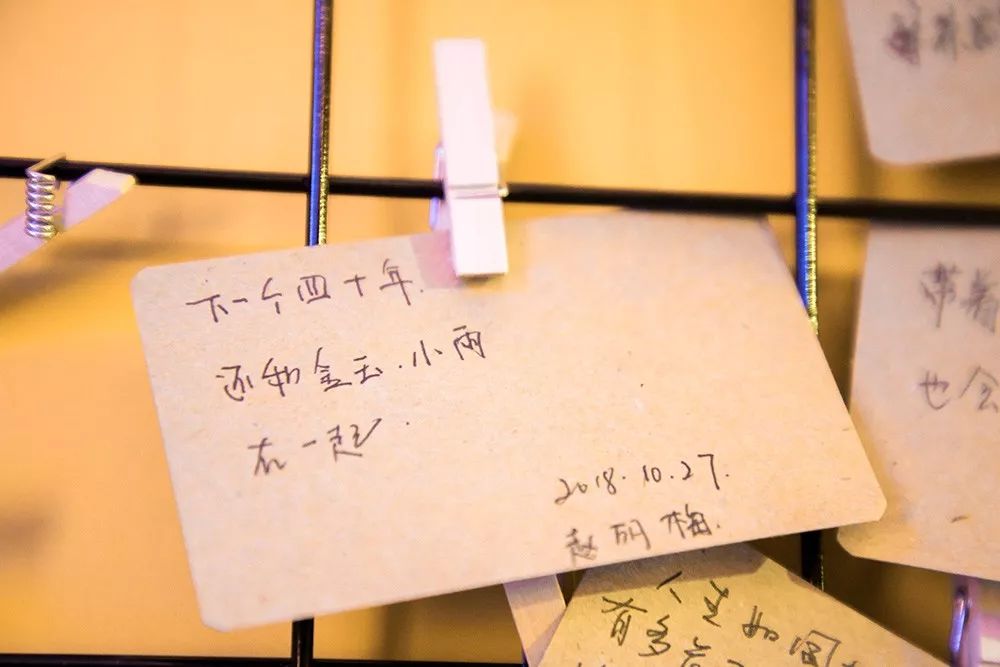 下一个四十年.
还和金玉.小雨
在一起.
2018.10.27.
赵丽梅.
带着
也会
人生如
有多